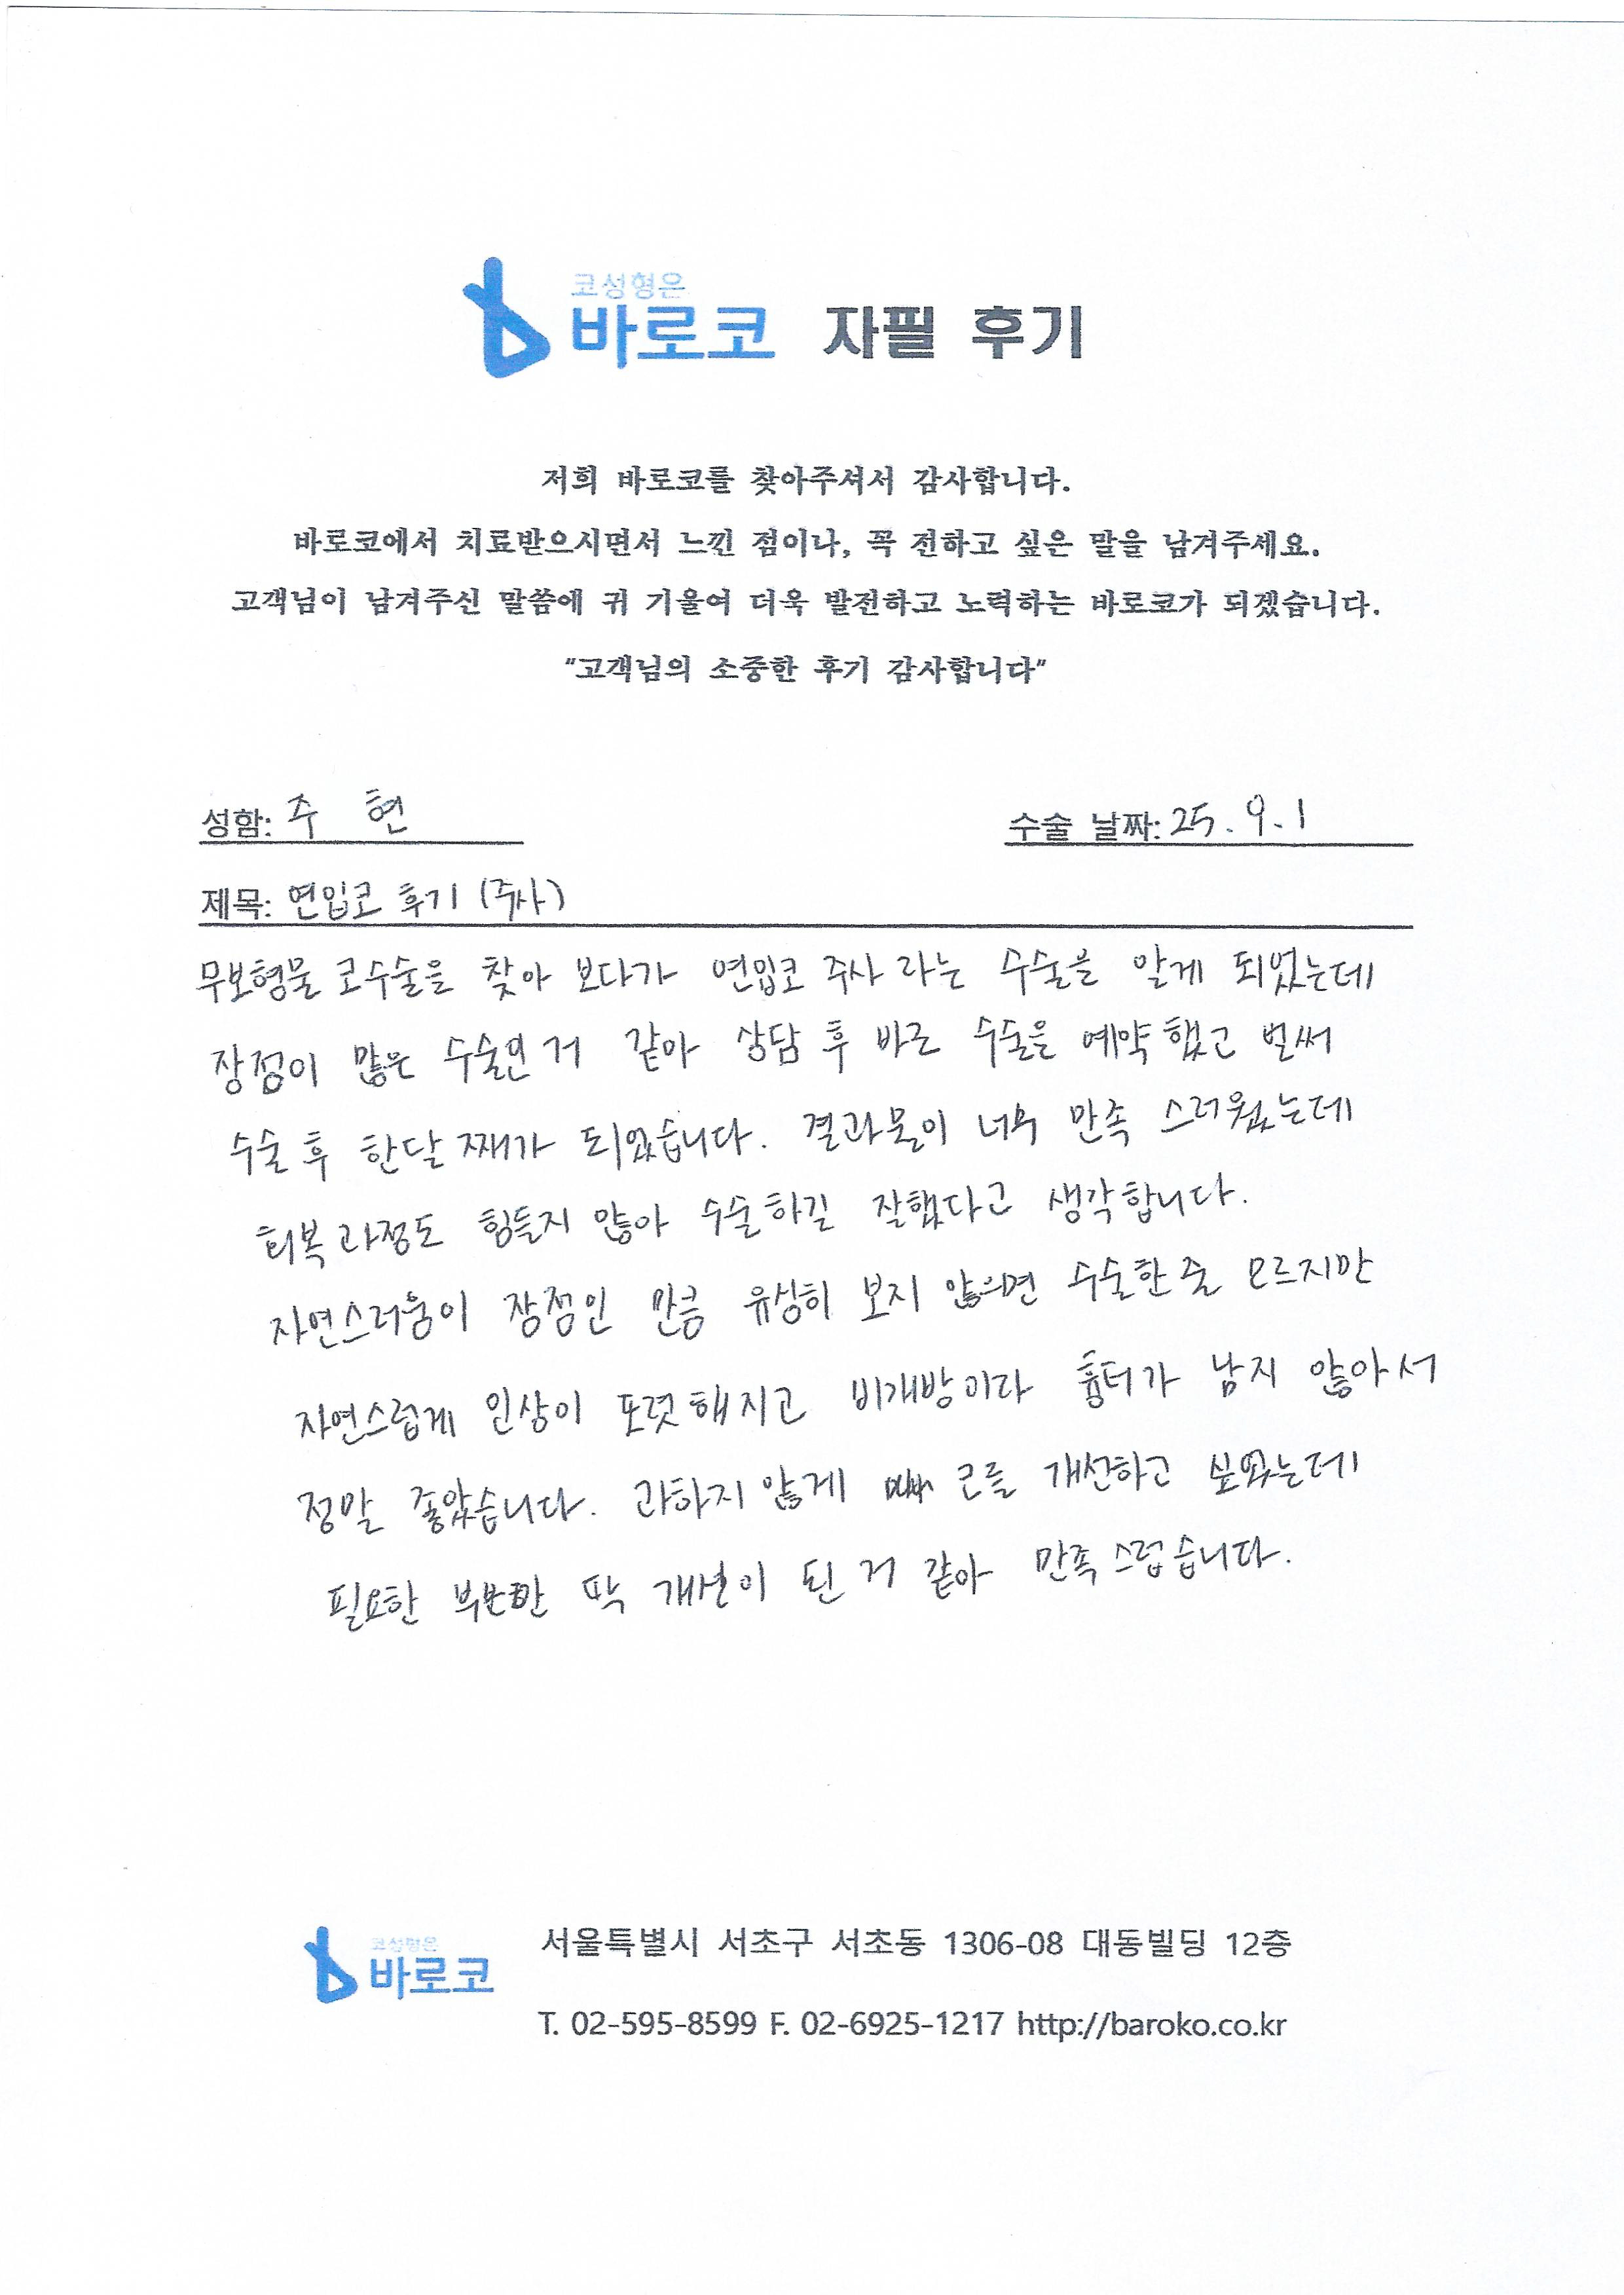 코성형은
바로코 자필 후기
저희 바로코를 찾아주셔서 감사합니다.
바로코에서 치료받으시면서 느낀 점이나, 꼭 전하고 싶은 말을 남겨주세요.
고객님이 남겨주신 말씀에 귀 기울여 더욱 발전하고 노력하는 바로코가 되겠습니다.
"고객님의 소중한 후기 감사합니다"
성함: 주 현 수술 날짜: 25. 9. 1
제목: 연입코 후기 (주사)
무보형물 코수술을 찾아 보다가 연입코 주사 라는 수술을 알게 되었는데
장점이 많은 수술인 거 같아 상담 후 바로 수술을 예약했고 벌써
수술 후 한달 째가 되었습니다. 결과물이 너무 만족 스러웠는데
회복 과정도 힘들지 않아 수술하길 잘했다고 생각합니다.
자연스러움이 장점인 만큼 유심히 보지 않으면 수술한 줄 모르지만
자연스럽게 인상이 또렷해지고 비개방이라 흉터가 남지 않아서
정말 좋았습니다. 과하지 않게 코를 개선하고 싶었는데
필요한 부분만 딱 개선이 된 거 같아 만족스럽습니다.
코성형은
바로코
서울특별시 서초구 서초동 1306-08 대동빌딩 12층
T. 02-595-8599 F. 02-6925-1217 http://baroko.co.kr